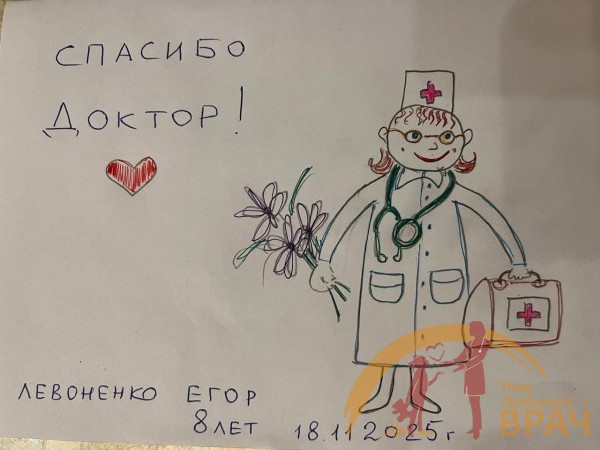 СПАСИБО
ДОКТОР!
ЛЕВОНЕНКО ЕГОР
8 ЛЕТ 18.11.2025г
ВРАЧ